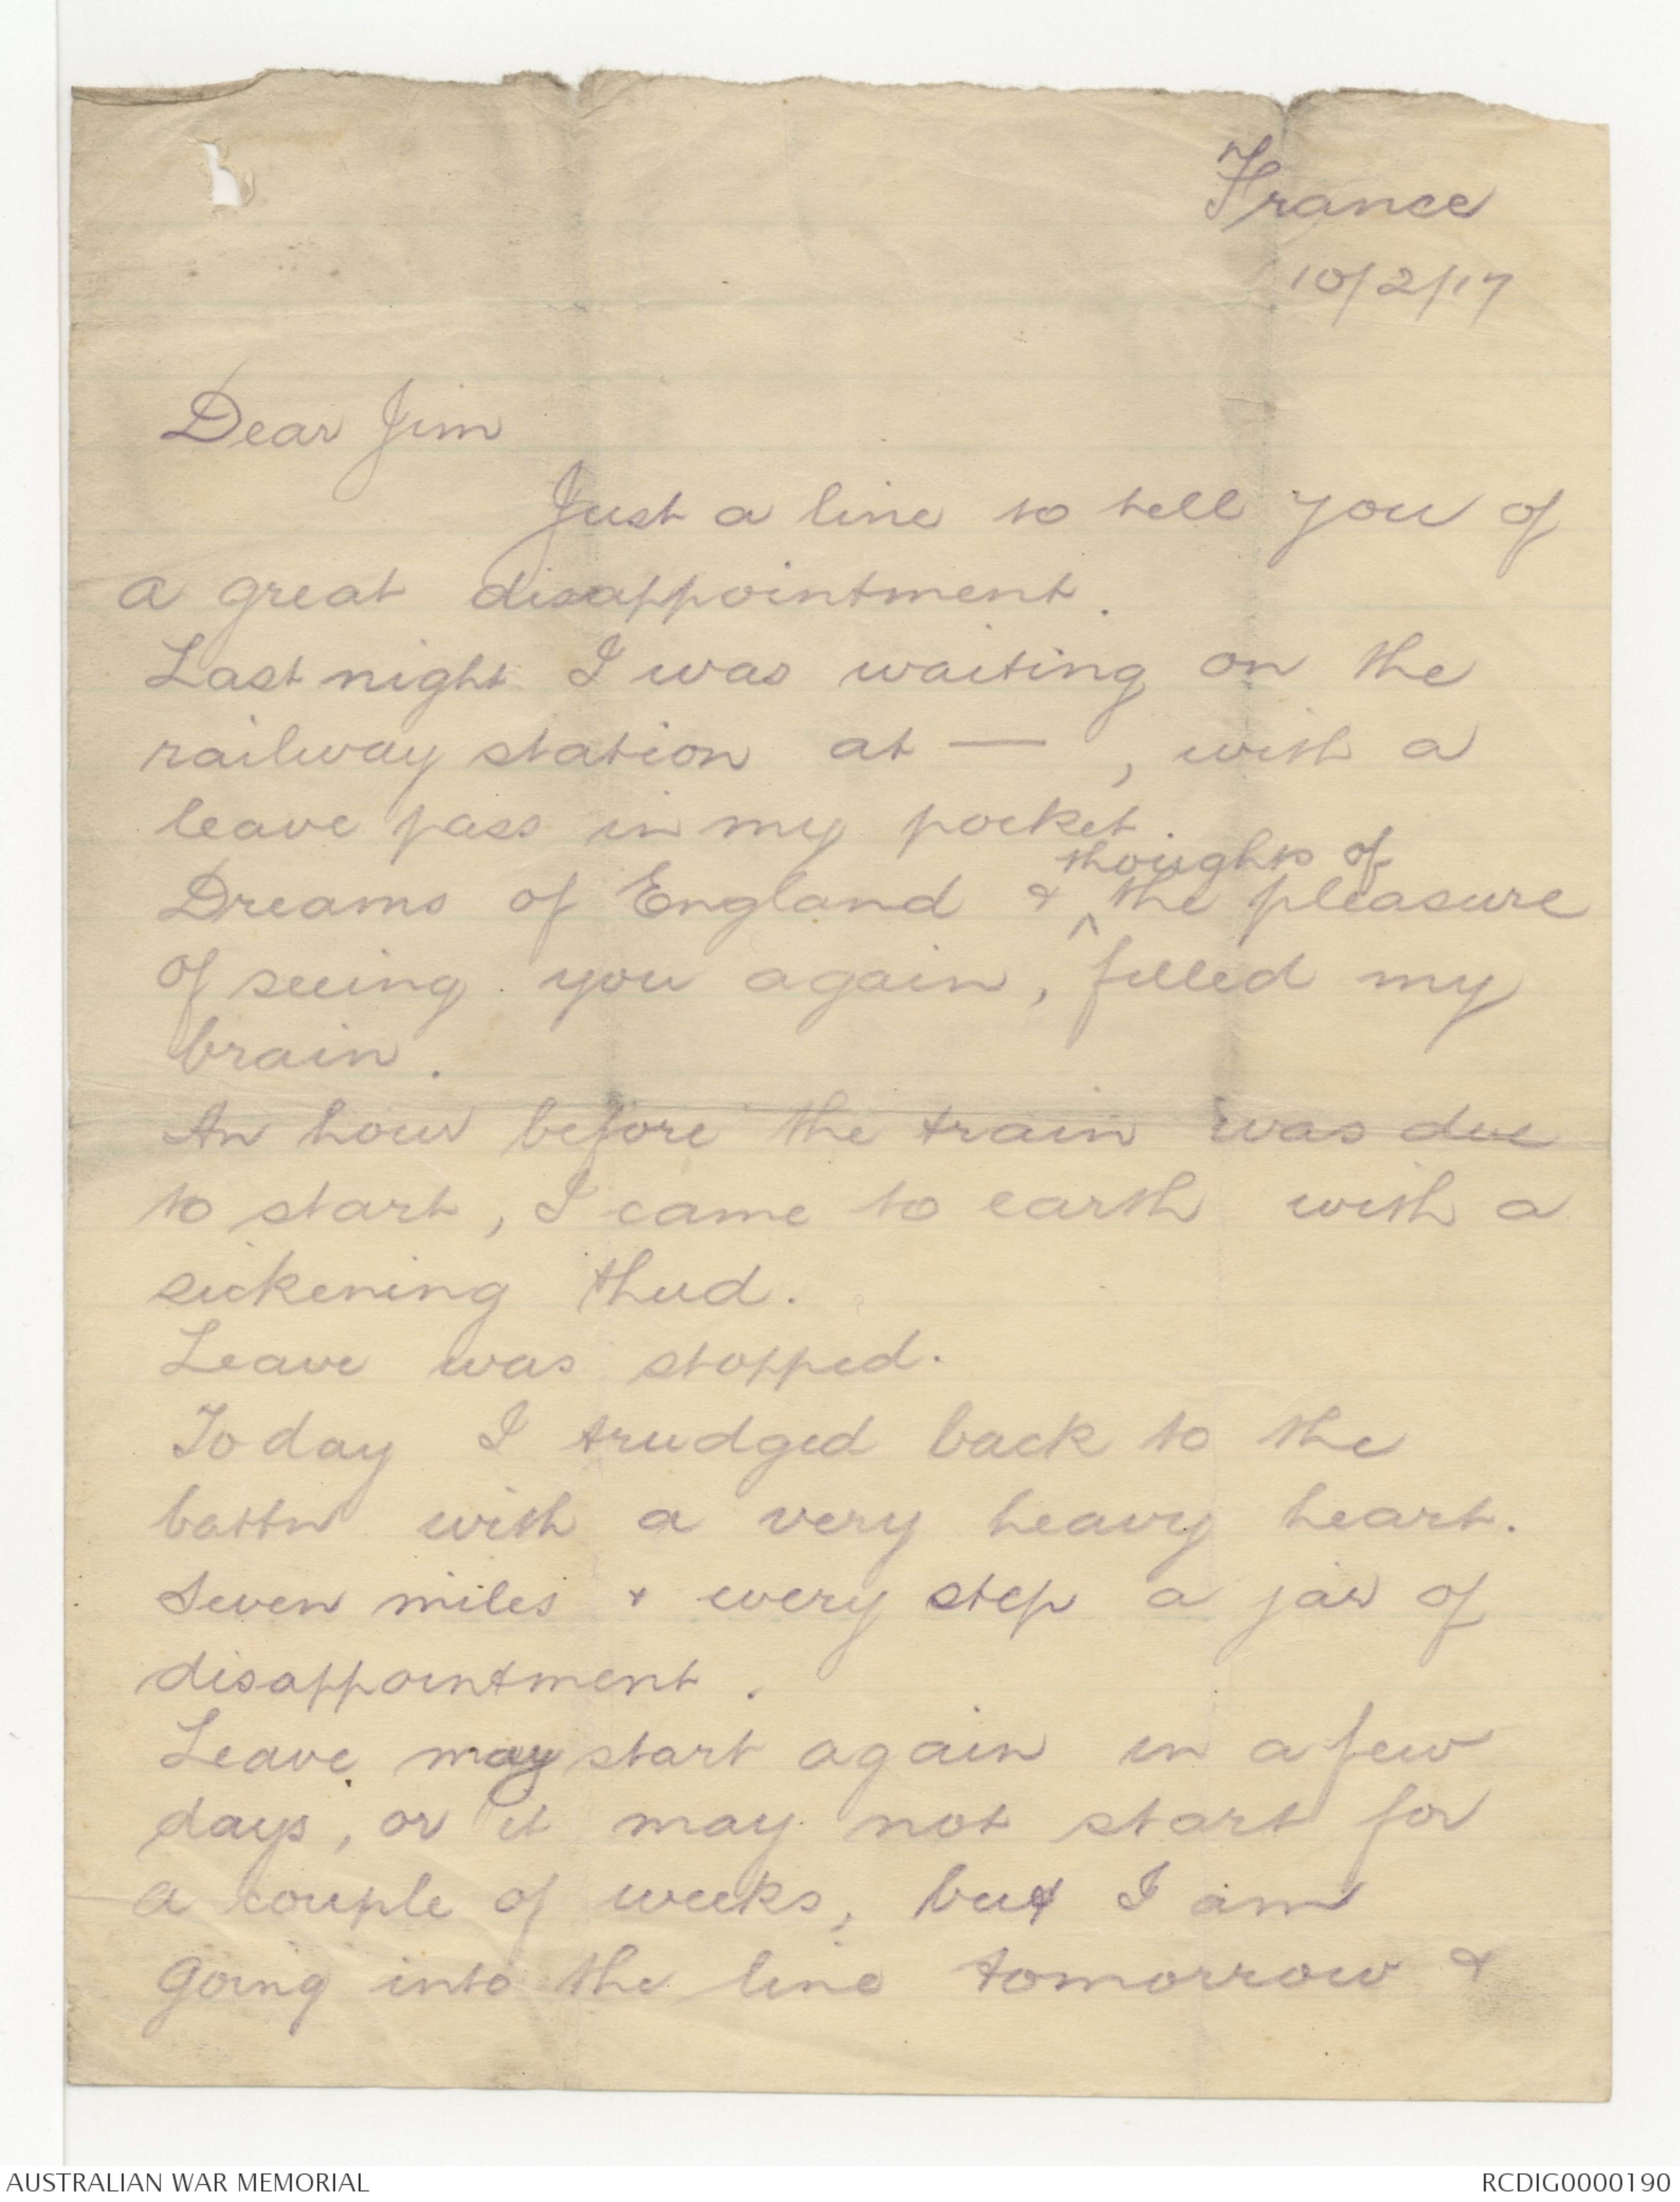 France
10/2/17
Dear Jim
Just a line to tell you of
a great disappointment.
Last night I was waiting on the
railway station at — , with a
leave pass in my pocket.
Dreams of England & ^ thoughts of the pleasure
of seeing you again, filled my
brain.
An hour before the train was due
to start, I came to earth with a
sickening thud.
Leave was stopped.
Today I trudged back to the
battn with a very heavy heart.
Seven miles & every step a jar of
disappointment.
Leave may start again in a few
days, or it may not start for
a couple of weeks, but I am
going into the line tomorrow &
AUSTRALIAN WAR MEMORIAL
RCDIG0000190